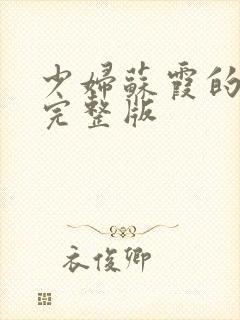 少婦蘇霞的
完整版
衣俊卿